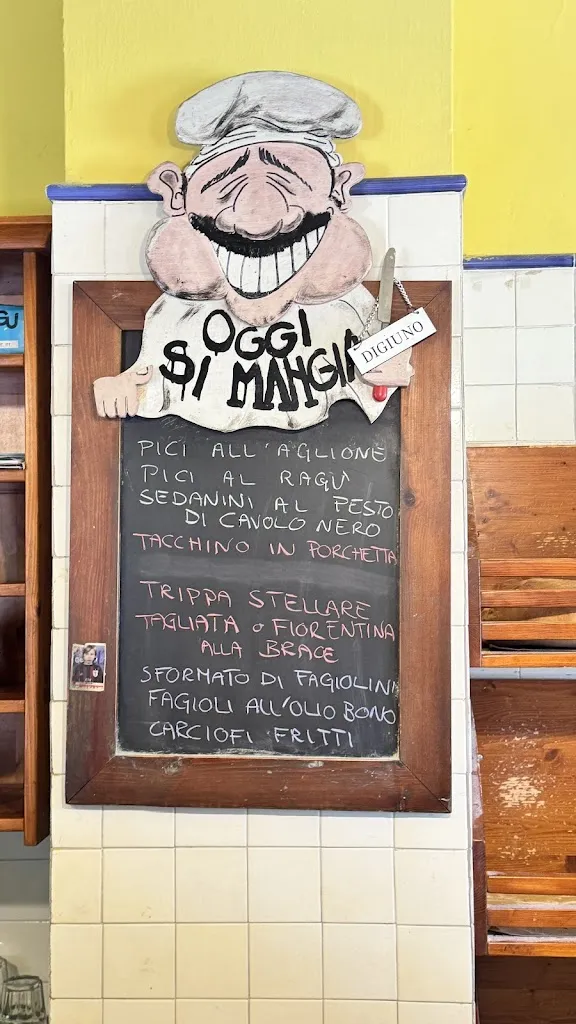 OGGI
SI MANGIA
DIGIUNO
PICI ALL'AGLIONE
PICI AL RAGÙ
SEDANINI AL PESTO
DI CAVOLO NERO
TACCHINO IN PORCHETTA
TRIPPA STELLARE
TAGLIATA O FIORENTINA
ALLA BRACE
SFORMATO DI FAGIOLINI
FAGIOLI ALL'OLIO BONO
CARCIOFI FRITTI